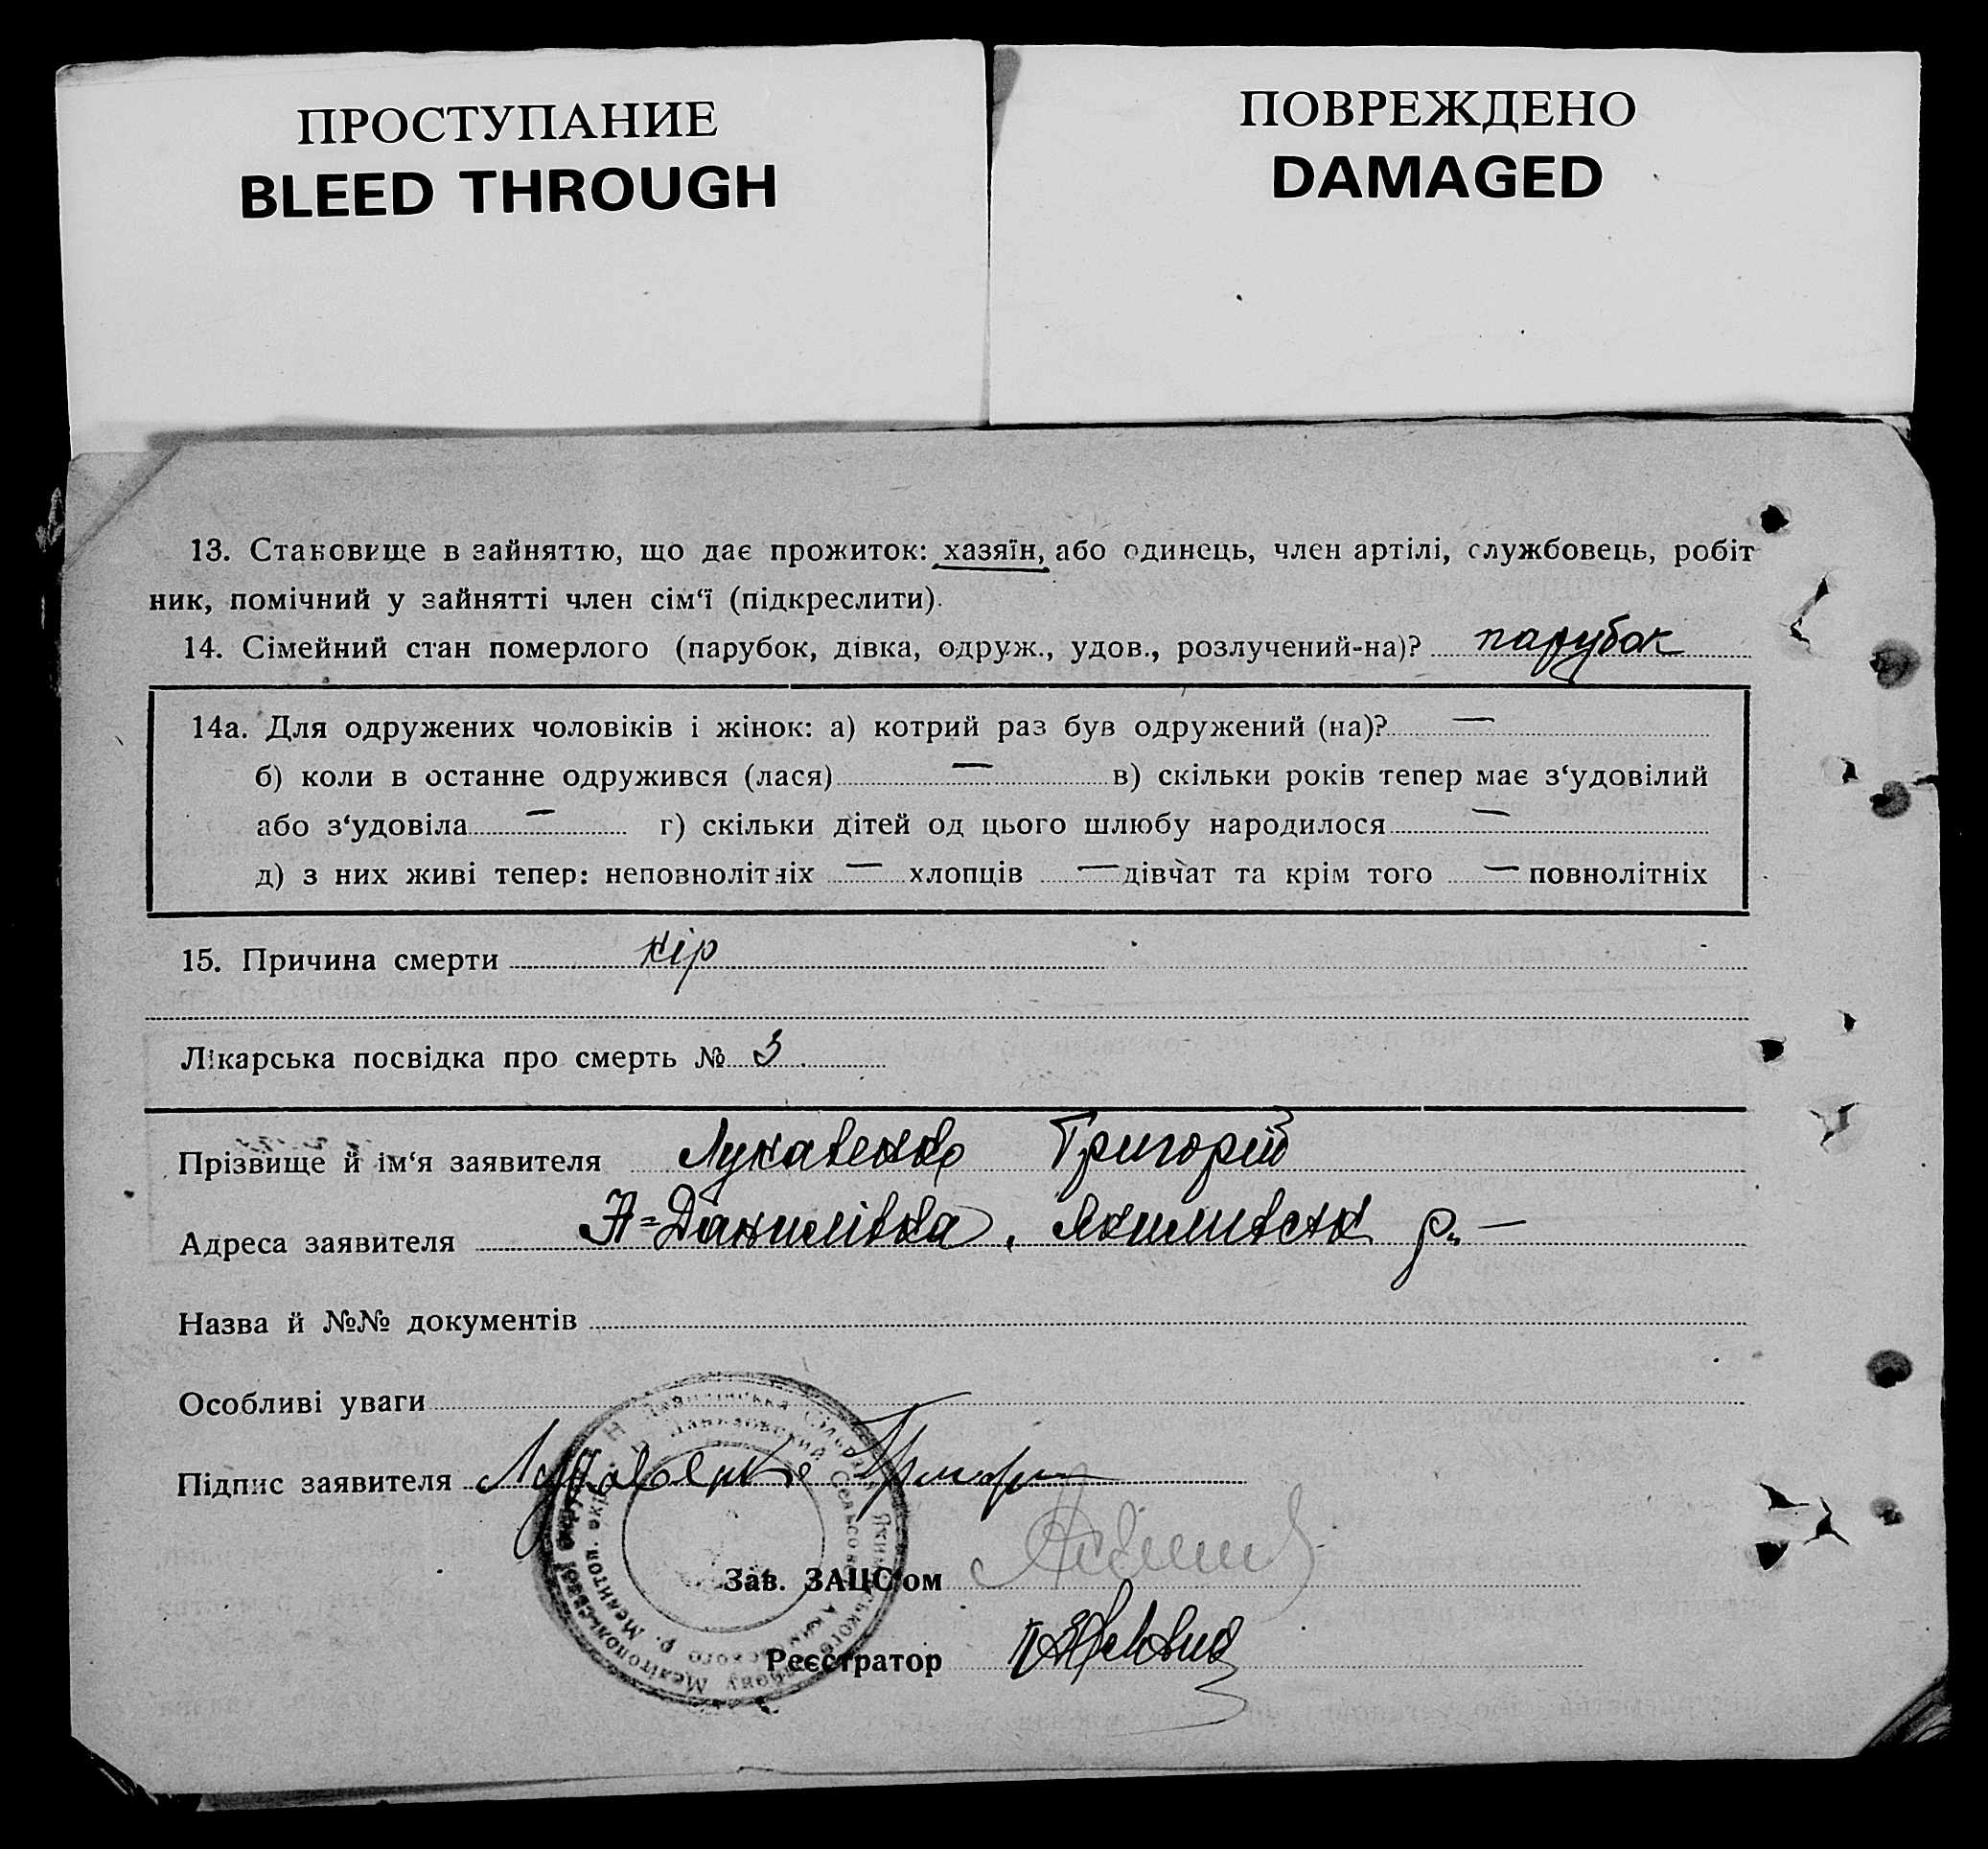 ПРОСТУПАНИЕ
BLEED THROUGH
ПОВРЕЖДЕНО
DAMAGED
13. Становище в зайняттю, що дає прожиток: хазяїн, або одинець, член артілі, службовець, робіт
ник, помічний у зайнятті член сім‘ї (підкреслити).
14. Сімейний стан померлого (парубок, дівка, одруж., удов., розлучений-на)? парубок
14а. Для одружених чоловіків і жінок: а) котрий раз був одружений (на)? —
б) коли в останне одружився (лася) — в) скільки років тепер має з‘удовілий
або з‘удовіла — г) скільки дітей од цього шлюбу народилося —
д) з них живі тепер: неповнолітніх — хлопців — дівчат та крім того — повнолітніх
15. Причина смерти кір
Лікарська посвідка про смерть № 3
Прізвище й ім‘я заявителя Лукавенко Григорій
Адреса заявителя Н=Данилівка, Якимивськ р. —
Назва й №№ документів
Особливі уваги
Підпис заявителя Лукавенко Григорий
Зав. ЗАЦС‘ом
Реєстратор